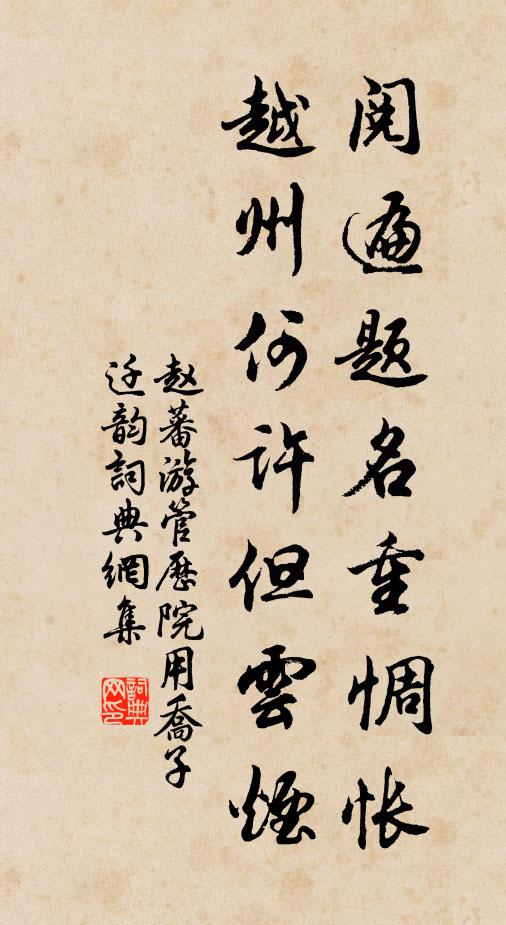 阅遍题名重惆怅
越州何许但雲煙
赵蕃游管歷院用喬子
迁韵詞典網集
詞典网印